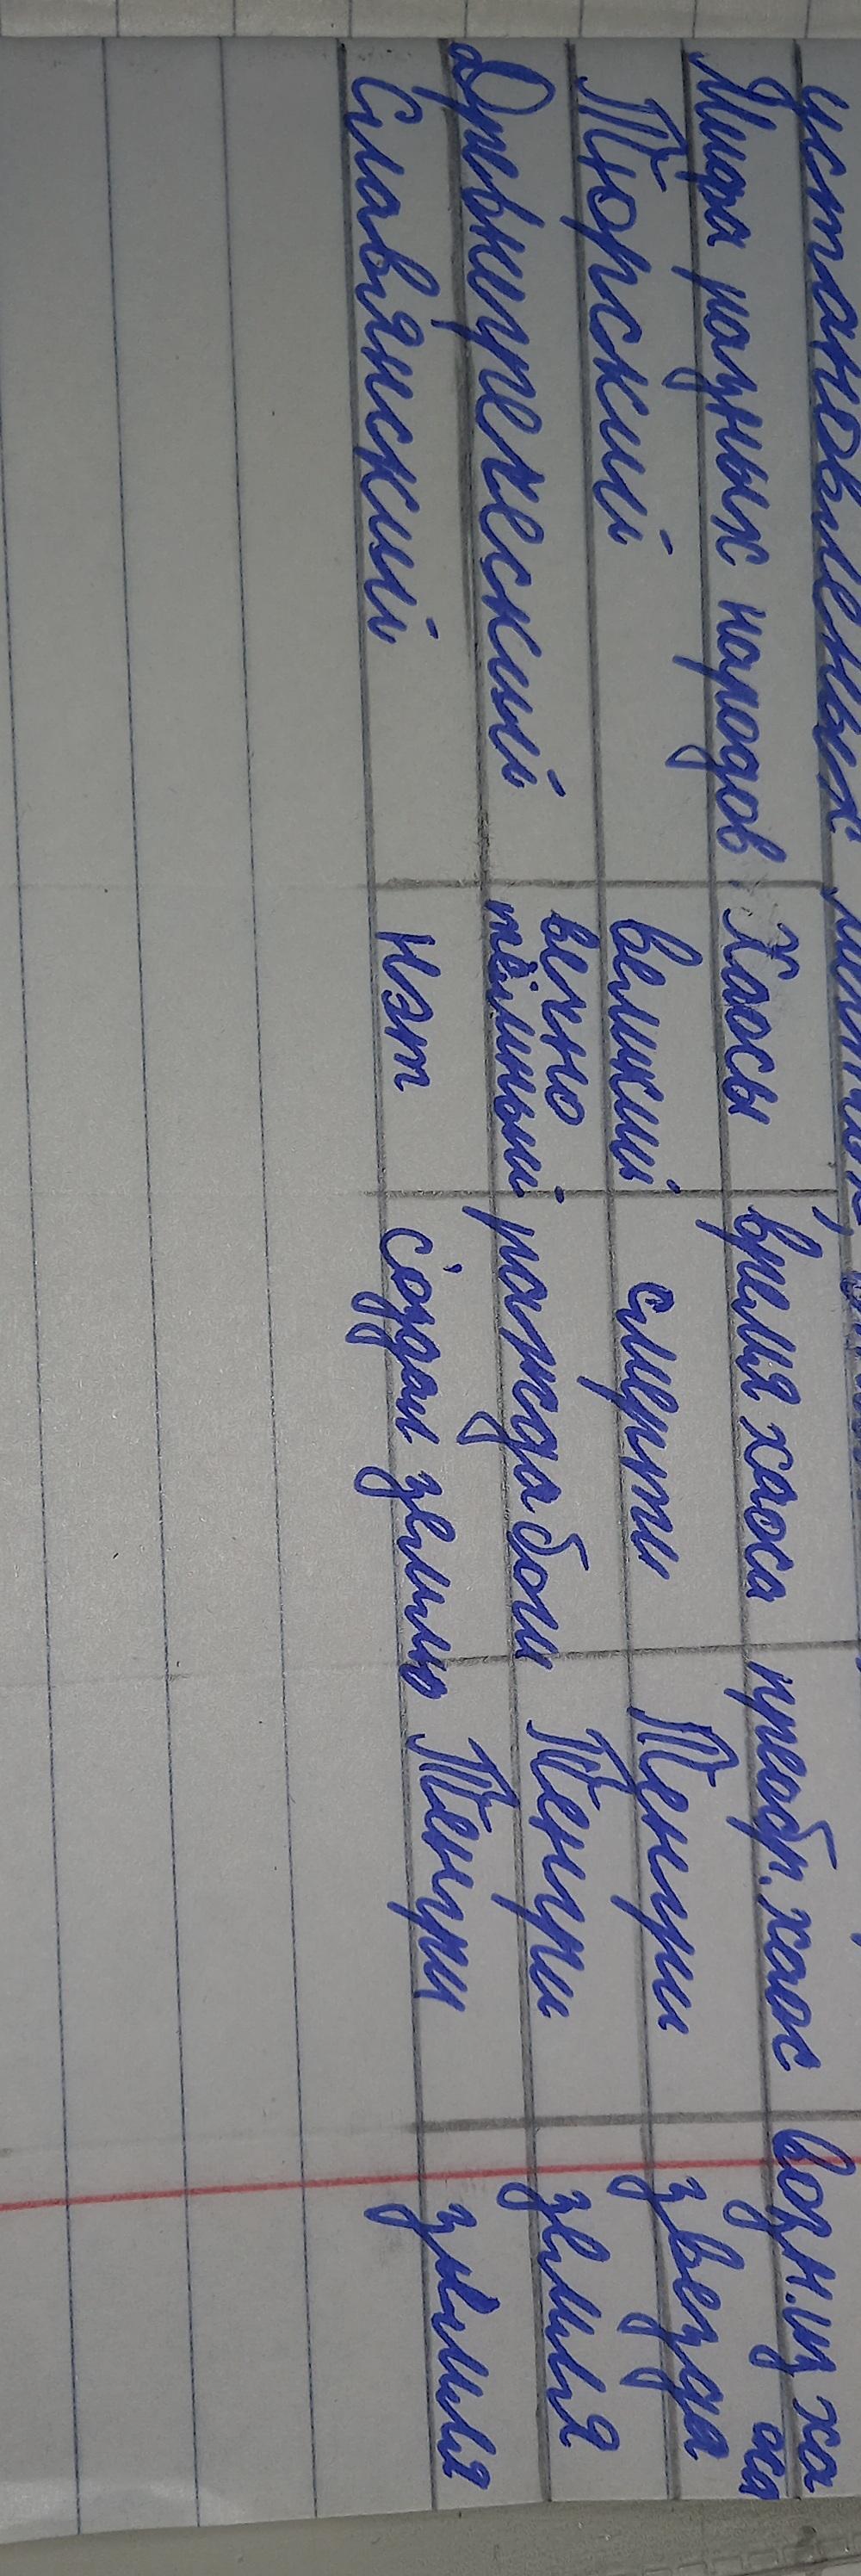 установленных
Мифа разных народов Хаосы время хаоса преобр. хаос Возн. из ха оса
Тюрский великий смерти Тенгри звезда
Древнигреческий вечно тёмный рождабоги Тенгри земля
Славянский нэт создал землю Тенгри земля